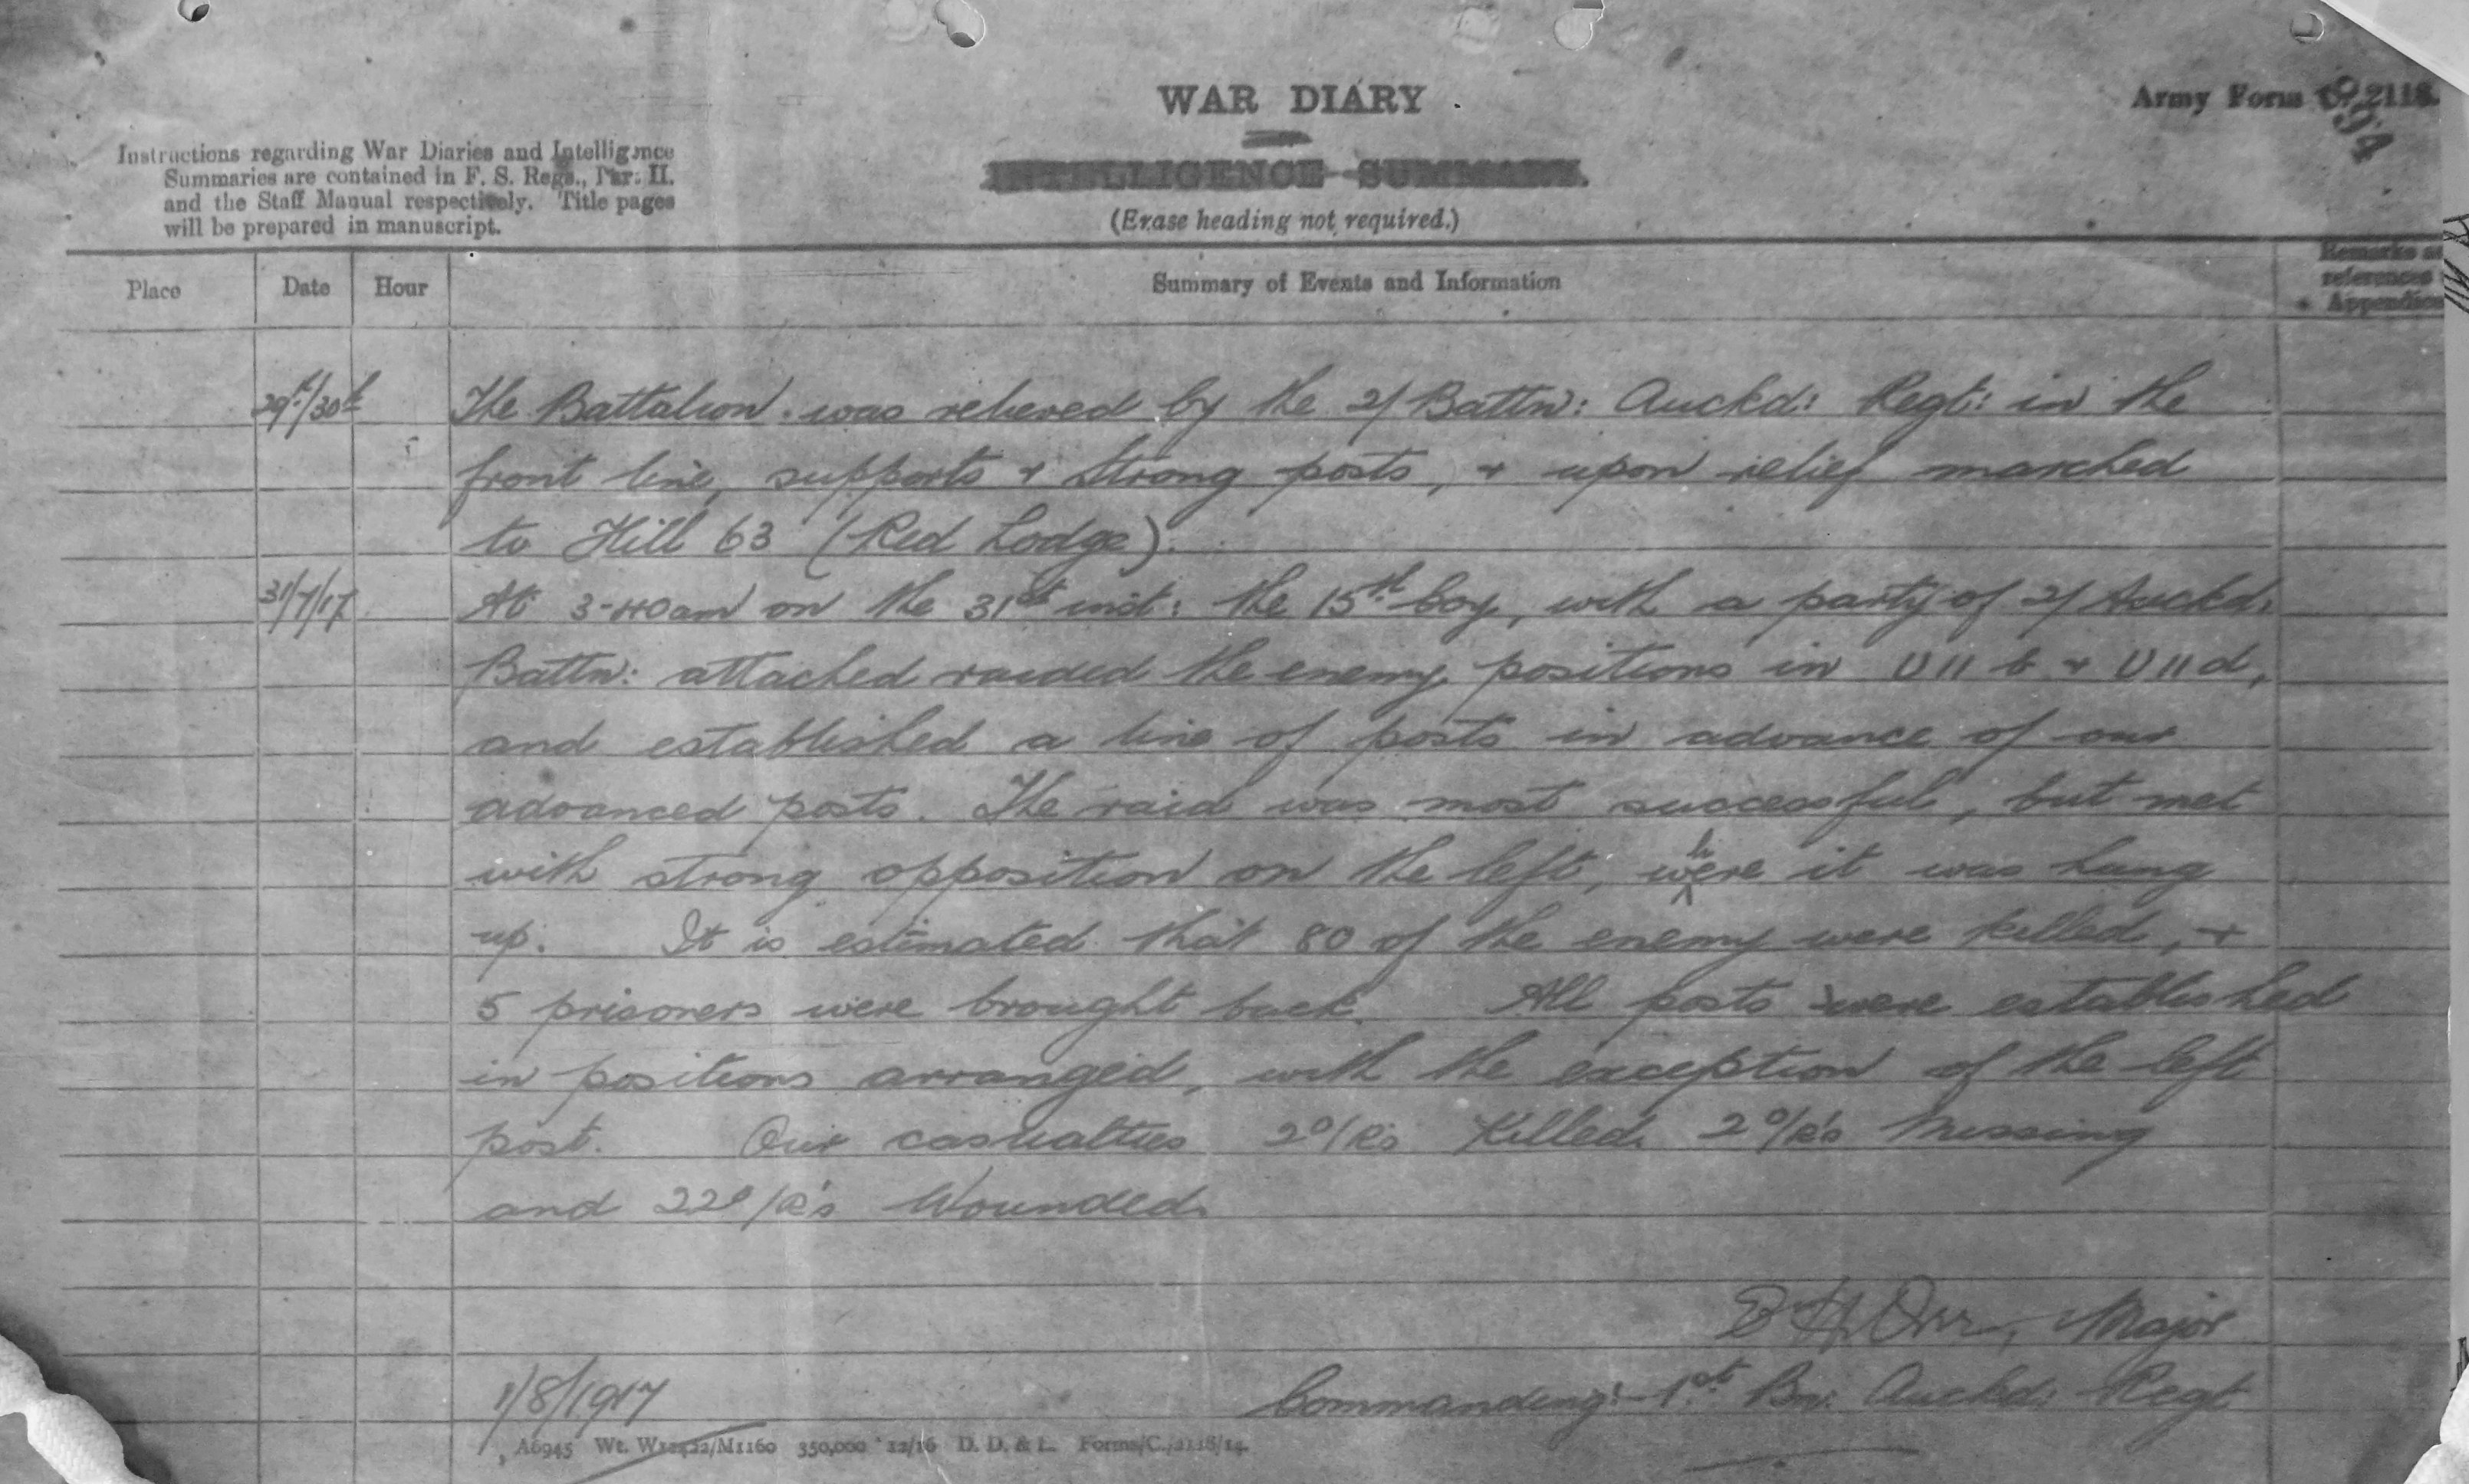 WAR DIARY
Army Form C. 2118.
894
Instructions regarding War Diaries and Intelligence
Summaries are contained in F. S. Regs., Par. II.
and the Staff Manual respectively. Title pages
will be prepared in manuscript.
INTELLIGENCE SUMMARY.
(Erase heading not required.)
Place Date Hour Summary of Events and Information Remarks references Appendices
29th/30th The Battalion was relieved by the 2/ Battn: Auckd: Regt: in the
front line, supports & strong posts, & upon relief marched
to Hill 63 (Red Lodge).
31/7/17 At 3-40am on the 31st inst: the 15th Coy, with a party of 2/ Auckd:
Battn: attached raided the enemy positions in U 11 b & U 11 d,
and established a line of posts in advance of our
advanced posts. The raid was most successful, but met
with strong opposition on the left, where it was hung
up. It is estimated that 80 of the enemy were killed, &
5 prisoners were brought back. All posts were established
in positions arranged, with the exception of the left
post. Our casualties 2 O/R's Killed. 2 O/R's Missing
and 22 O/R's Wounded.
Orr, Major
1/8/1917 Commanding:- 1st Bn. Auckd: Regt
A6945 Wt. /M1160 350,000 12/16 D. D. & L. Forms/C./2118/14.